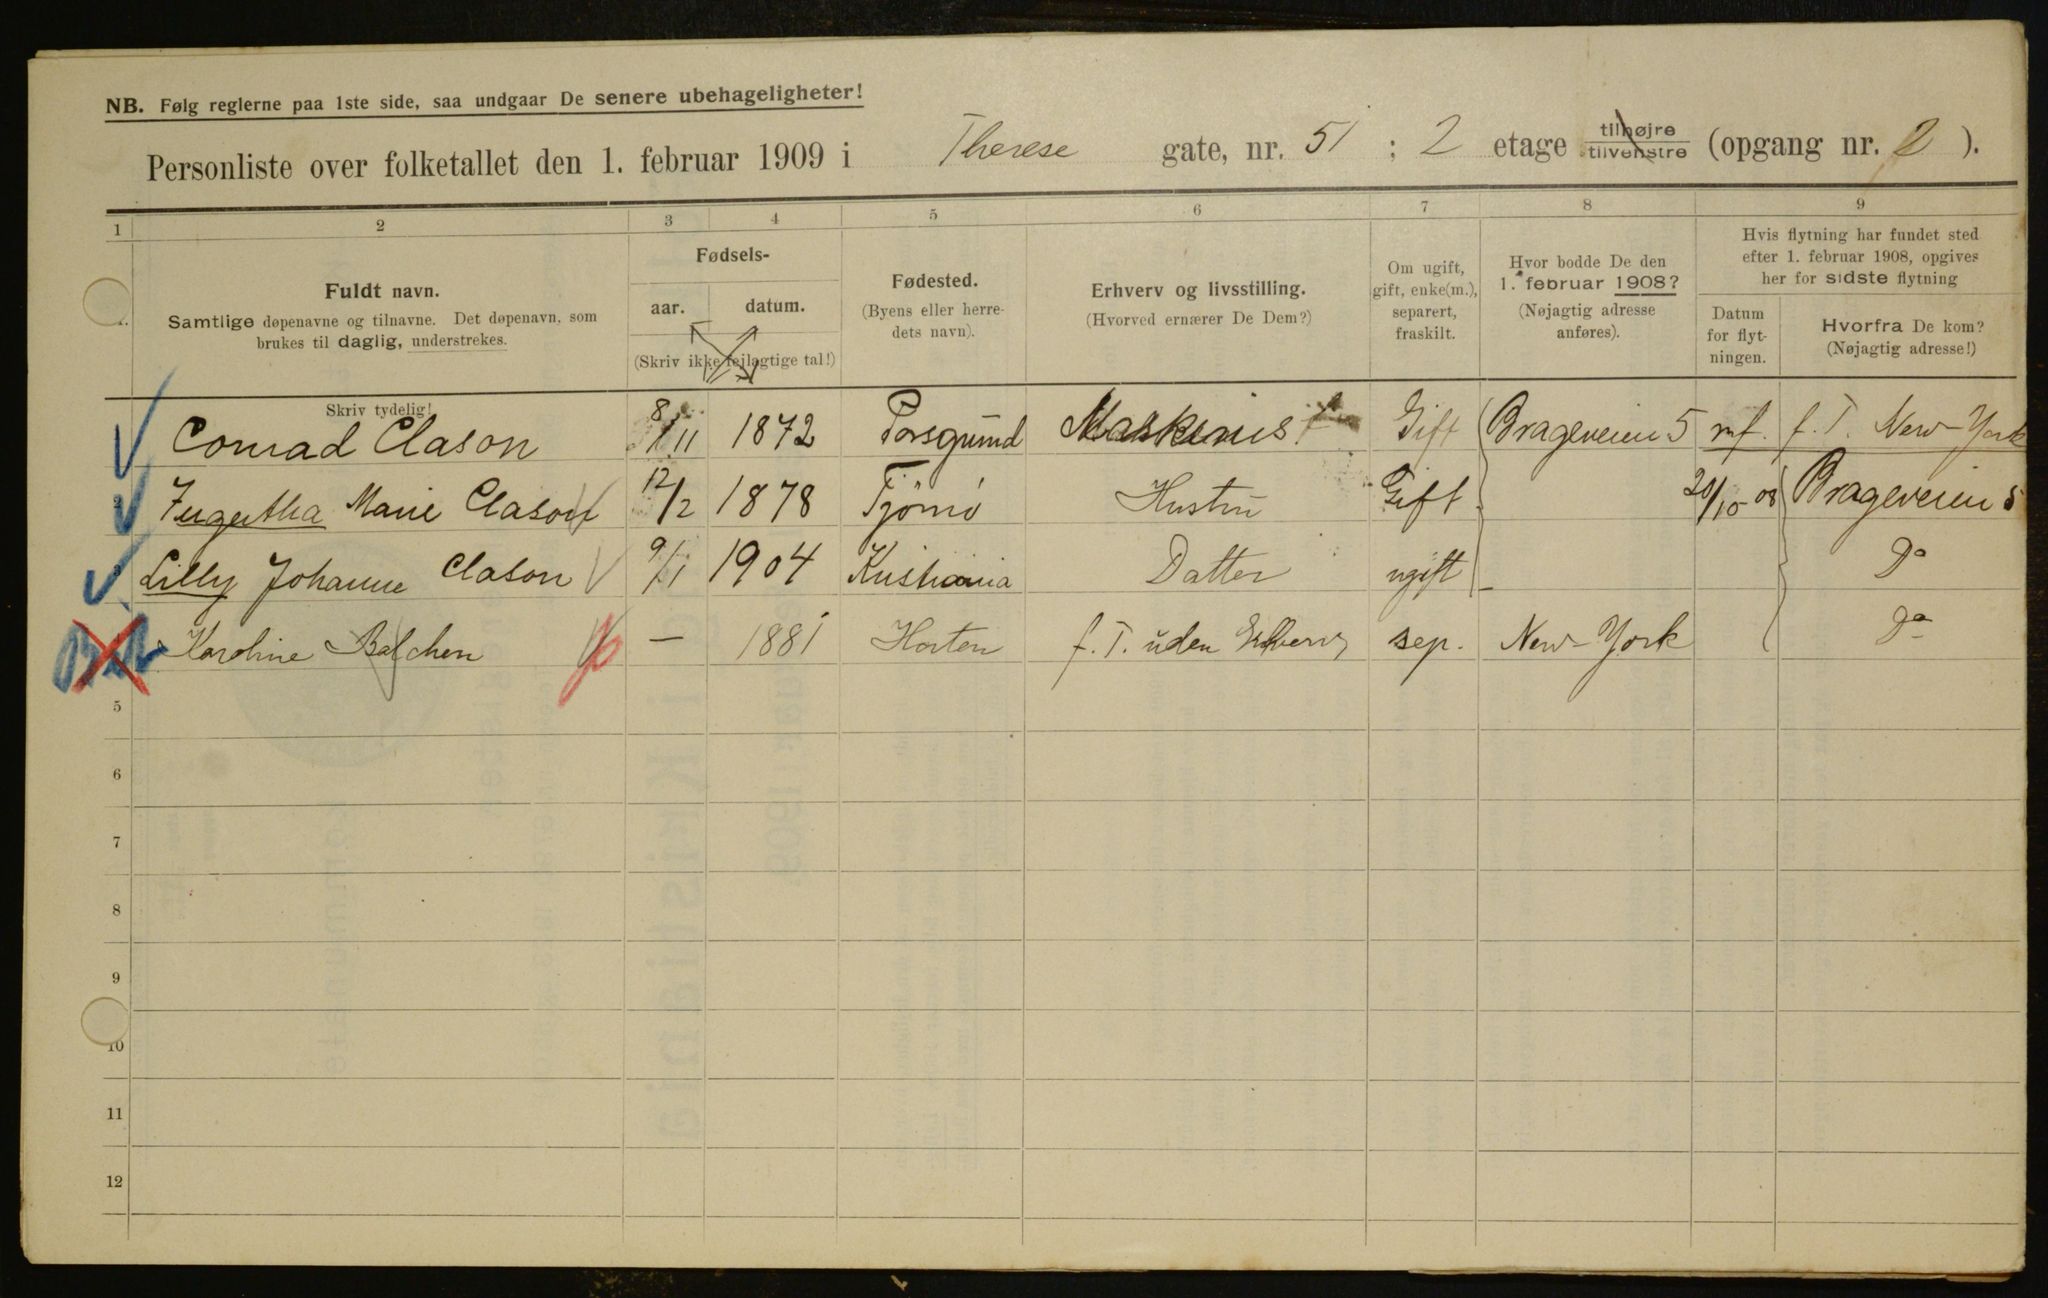 NB. Følg reglerne paa 1ste side, saa undgaar De senere ubehageligheter!
Personliste over folketallet den 1. februar 1909 i Therese gate, nr. 51 ; 2 etage tilhøjre tilvenstre (opgang nr. 2 ).
1 2 3 4 5 6 7 8 9
Fuldt navn.
Samtlige døpenavne og tilnavne. Det døpenavn, som
brukes til daglig, understrekes.
Skriv tydelig!
Fødsels-
aar. datum.
(Skriv ikke fejlagtige tal!)
Fødested.
(Byens eller herre-
dets navn).
Erhverv og livsstilling.
(Hvorved ernærer De Dem?)
Om ugift,
gift, enke(m.),
separert,
fraskilt.
Hvor bodde De den
1. februar 1908?
(Nøjagtig adresse
anføres).
Hvis flytning har fundet sted
efter 1. februar 1908, opgives
her for sidste flytning
Datum
for flyt-
ningen.
Hvorfra De kom?
(Nøjagtig adresse!)
Conrad Clason 8/11 1872 Porsgrund Maskinist Gift Brageveien 5 mf. f. T. New-York
Marie Clason 12/2 1878 Tjømø Hustru Gift 20/10-08 Brageveien 5
Lilly Johanne Clason 9/1 1904 Kristiania Datter ugift Do
Karoline Balchen — 1881 Horten f. T. uden Erhverv sep. New-York Do
5
6
7
8
9
10
11
12